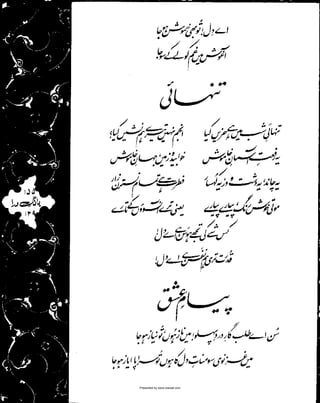 اے دل! تو بھی خموش ہو جا
آغوش میں غم کو لے کے سو جا
تنہائی
تنہائیِ شب میں ہے حزیں کیا
انجم نہیں تیرے ہم نشیں کیا؟
یہ رفعتِ آسمانِ خاموش
خوابیدہ زمیں، جہانِ خاموش
یہ چاند، یہ دشت و در، یہ کہسار
فطرت ہے تمام نسترن زار
موتی خوش رنگ، پیارے پیارے
یعنی ترے آنسوؤں کے تارے
کس شے کی تجھے ہوس ہے اے دل!
قدرت تری ہم نفس ہے اے دل!
پیامِ عشق
سن اے طلب گارِ دردِ پہلو! میں ناز ہوں، تو نیاز ہو جا
میں غزنوی سومناتِ دل کا ہوں تو سراپا ایاز ہو جا
بانگِ درا